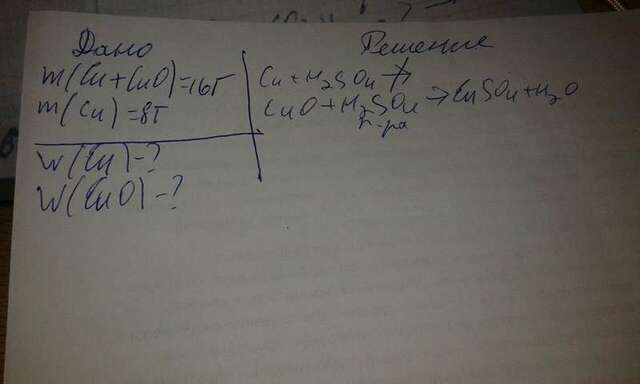 Дано
m(Cu+CuO)=16г
m(Cu)=8г
W(Cu)-?
W(CuO)-?
Решение
Cu+H₂SO₄ ↛
CuO+H₂SO₄→CuSO₄+H₂O
р-ра